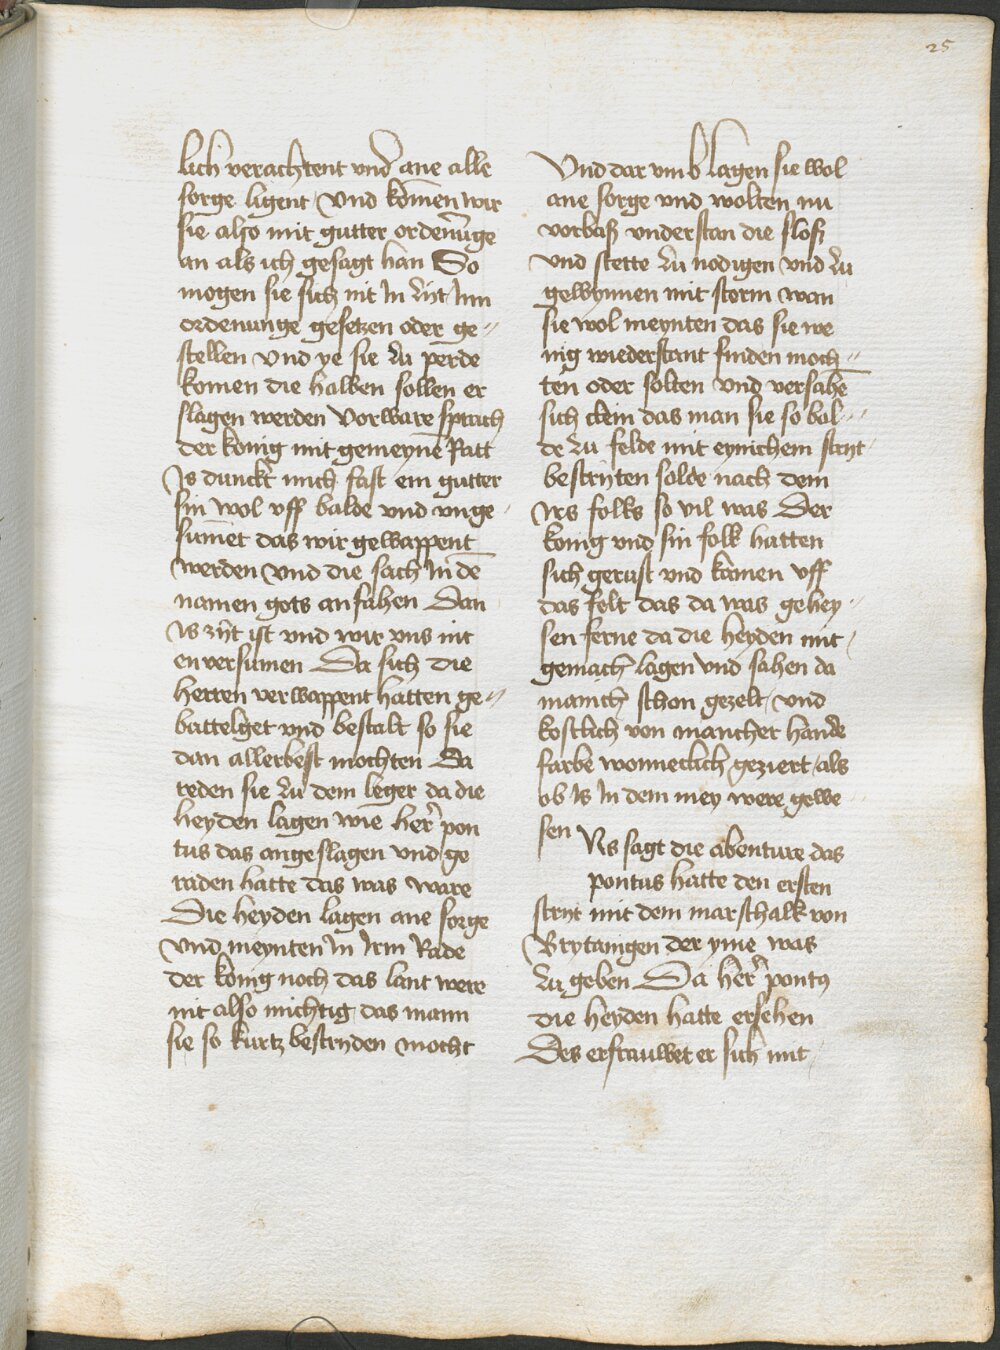 25
lich verachtent vnd ane alle
sorge ligent vnd komen wir
sie also mit gutter ordenu̅ge
an als ich gesagt han So
mogen sie sich nit In zijt Inn
ordenunge gesetzen oder ge„
stellen vnd ye sie zu perde
komen die halben sollen er
slagen werden vorware sprach
der konig mit gemeyne̅ Ratt
Is dunckt mich fast ein gutter
sin wol vff balde vnd vnge„
sumet das wir gewappent
werden vnd die sach In de̅
namen gots anfahen Dan
Is zijt ist vnd wir vns nit
enversumen Da sich die
herren verwappent hatten ge„
battelget vnd bestalt so sie
dan allerbest mochten Da
reden sie zu dem leger da die
heyden lagen wie her pon
tus das angeslagen vnd ge
raden hatte das was ware
Die heyden lagen ane sorge
vnd meynten In Irm Rade
der konig noch das lant were
nit also michtig das mann
sie so kurtz bestryden mocht
Vnd dar vmb lagen sie wol
ane sorge vnd wolten nu
vorbaß vnderstan die sloß
vnd stette zu nodigen vnd zu
gewynnen mit storm wan
sie wol meynten das sie we
nig wiederstant finden moch„
ten oder solten vnd versahe̅
sich clein das man sie so bal„
de zu felde mit eynichem stryt
bestryten solde nach dem
Irs folks so vil was Der
konig vnd sin folk hatten
sich gerust vnd kamen vff
das felt das da was gehey„
sen ferne da die heyden mit
gemach lagen vnd sahen da
manich schon gezelt vnd
kostlich von mancher hande
farbe wonneclich geziert als
ob Is In dem mey were gewe
sen
Us sagt die abenture das
pontus hatte den ersten
stryt mit dem marschalk von
Brytanigen der yme was
zu geben Da her pontus
die heyden hatte ersehen
Des erfrauwet er sich mit